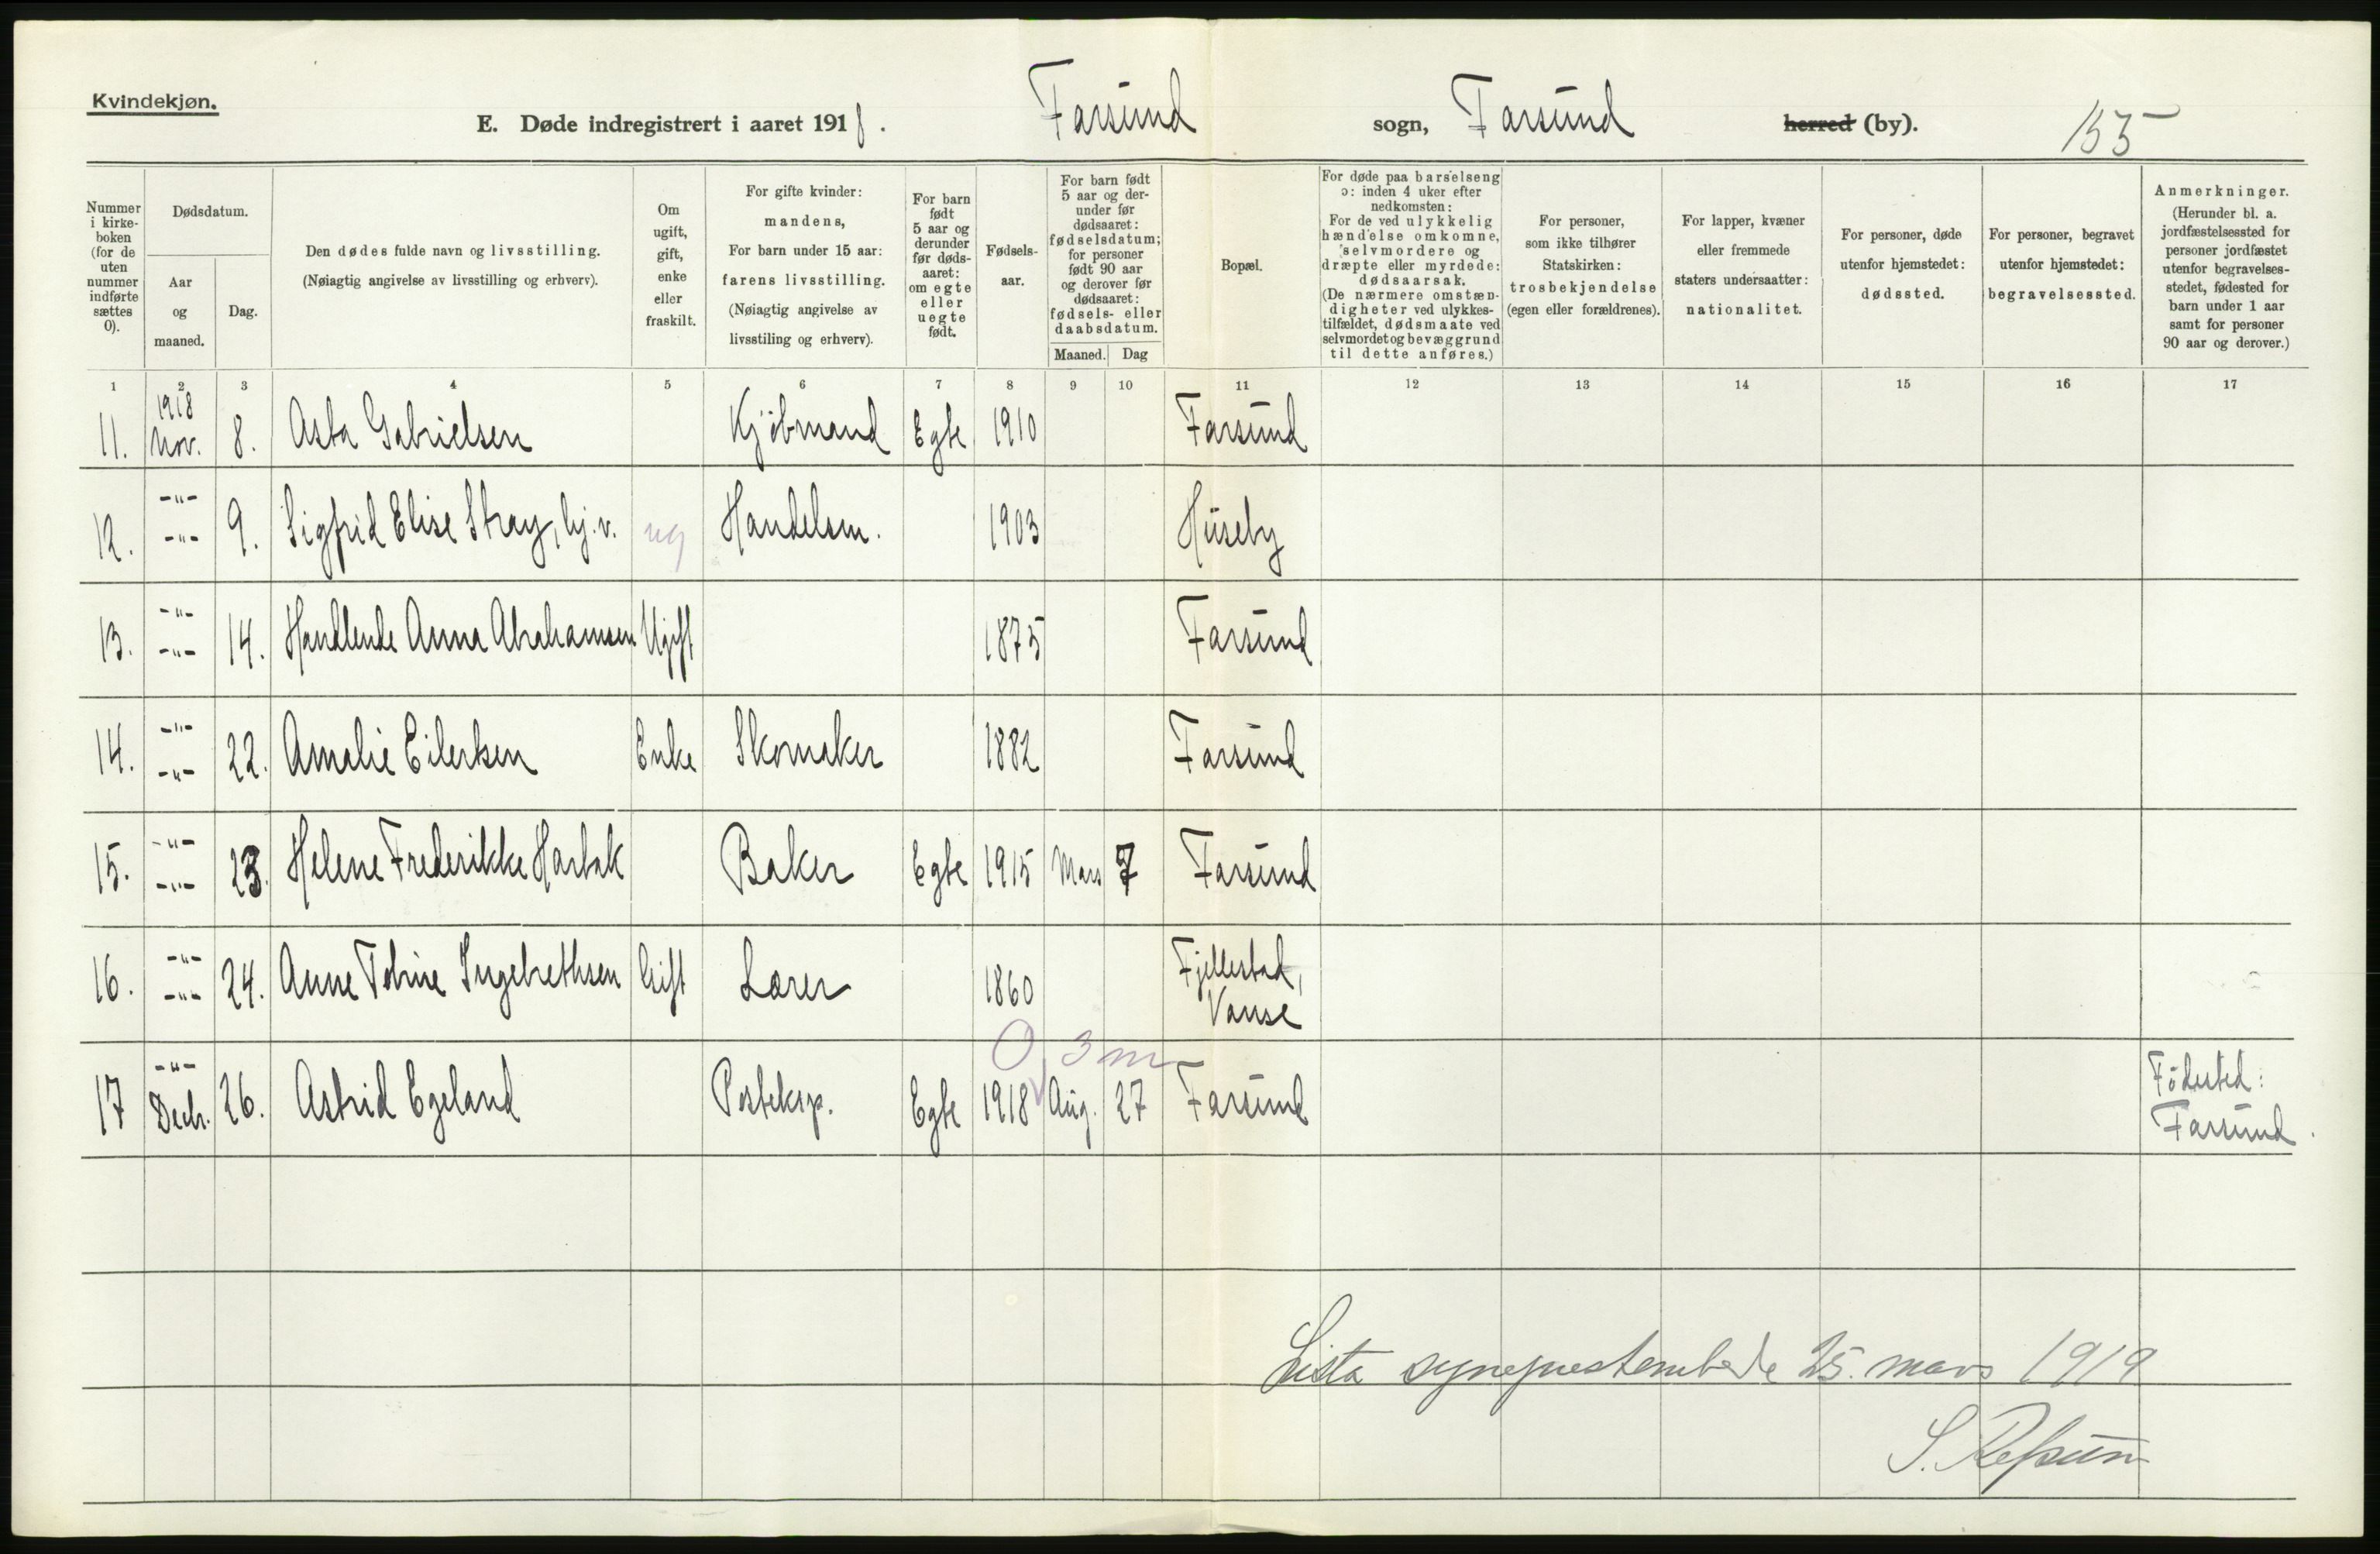 Kvindekjøn.
E. Døde indregistrert i aaret 1918. Farsund sogn, Farsund herred (by). 155
Nummer i kirke-boken (for de uten nummer indførte sættes 0).
Dødsdatum.
Aar og maaned.
Dag.
Den dødes fulde navn og livsstilling.
(Nøiagtig angivelse av livsstilling og erhverv).
Om ugift, gift, enke eller fraskilt.
For gifte kvinder: mandens,
For barn under 15 aar: farens livsstilling.
(Nøiagtig angivelse av livsstiling og erhverv).
For barn født 5 aar og derunder før døds-aaret: om egte eller uegte født.
Fødsels-aar.
For barn født 5 aar og der-under før dødsaaret: fødselsdatum; for personer født 90 aar og derover før dødsaaret: fødsels- eller daabsdatum.
Maaned. Dag
Bopæl.
For døde paa barselseng ɔ: inden 4 uker efter nedkomsten:
For de ved ulykkelig hændelse omkomne, selvmordere og dræpte eller myrdede: dødsaarsak.
(De nærmere omstæn-digheter ved ulykkes-tilfældet, dødsmaate ved selvmordet og bevæggrund til dette anføres.)
For personer, som ikke tilhører Statskirken: trosbekjendelse (egen eller forældrenes).
For lapper, kvæner eller fremmede staters undersaatter: nationalitet.
For personer, døde utenfor hjemstedet: dødssted.
For personer, begravet utenfor hjemstedet: begravelsessted.
Anmerkninger.
(Herunder bl. a. jordfæstelsessted for personer jordfæstet utenfor begravelses-stedet, fødested for barn under 1 aar samt for personer 90 aar og derover.)
1 2 3 4 5 6 7 8 9 10 11 12 13 14 15 16 17
11. 1918 Nov. 8. Asta Gabrielsen Kjøbmand Egte 1910 Farsund
12. -"- -"- 9. Sigfrid Elise Stray, hj. v. ug Handelsm. 1903 Huseby
13. -"- -"- 14. Handlende Anna Abrahamsen Ugift 1875 Farsund
14. -"- -"- 22. Amalie Eilertsen Enke Skomaker 1882 Farsund
15. -"- -"- 23. Helene Frederikke Harbak Baker Egte 1915 Mars 7 Farsund
16. -"- -"- 24. Anne Tobine Ingebrethsen Gift Lærer 1860 Fjellestad, Vanse
0 3 m
17 -"- Decbr. 26. Astrid Egeland Posteksp. Egte 1918 Aug. 27 Farsund Födested: Farsund.
Lista sogneprestembede 25. mars 1919
S. Refsum